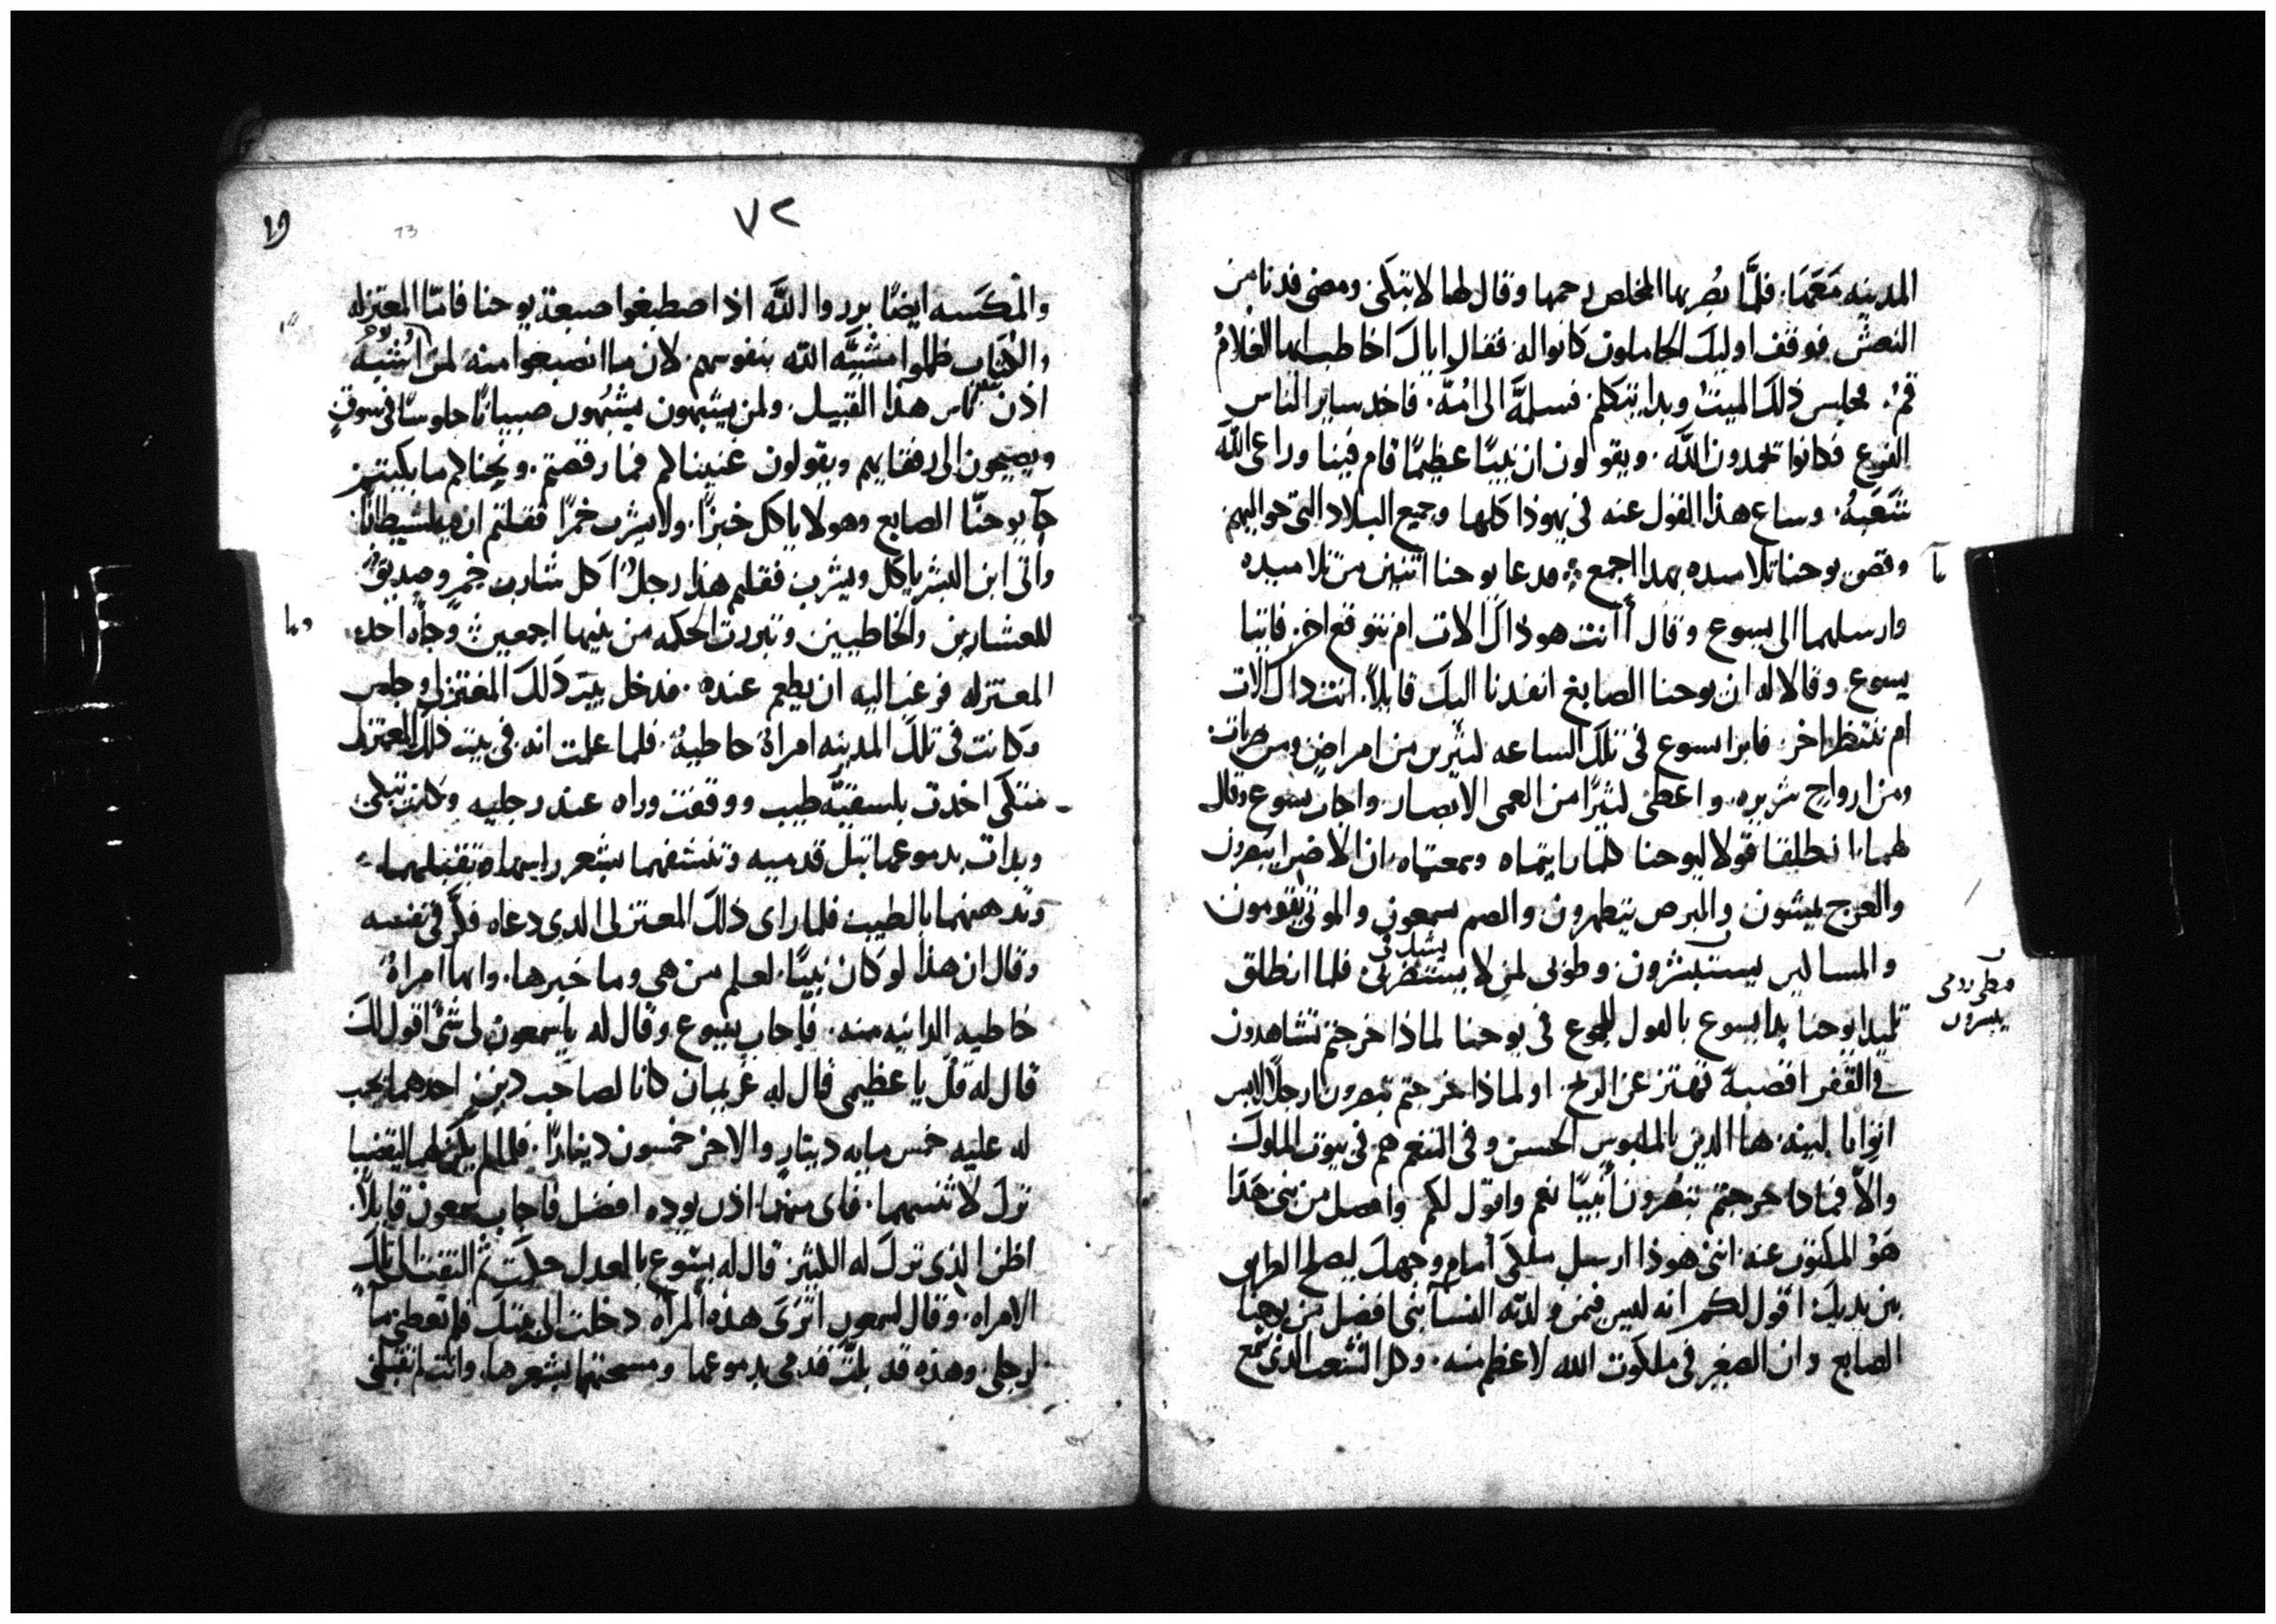 المدينه مَعَهَا. فلمَّا بصُر بها المخلص رحمها وقال لها لا تبكى. ومضى فدنا من
النعش فوقف اوليك الحاملون كانوا له فقال اياك اخاطب ايها الغلامُ
قمُ. فجلس ذلك الميتُ وبدا يتكلم. فسلمهَّ الى امُهّ. فاخد ساير الناس
الفزع فكانوا يحمدون الله. ويقولون ان نبيًا عظيمًا قام فينا وراعى الله
شَعَبهُ. وساع هذا القول عنه فى يهوذا كلها وجميع البلاد التى حواليهم
وقص يوحنا تلاميده بهدا اجمع فدعا يوحنا اتنين من تلاميده
وارسلهما الى يسوع وقال أانت هو ذاك الات ام نتوقع اخر. فاتيا
يسوع وقالا له ان يوحنا الصابغ انفدنا اليك قايلاً. انت داك الات
ام ننتظر اخر فابرا يسوع فى تلك الساعه لثيرين من امراض ومن ضربات
ومن ارواح شريره. واعطى لثيرًا من العمى الابصار. واجاب يسوع وقال
لهما انطلقا قولا ليوحنا كلما رايتماه وسمعتماه ان الاضرا يبصرون
والعرج يمشون والبرص يتطهرون والصم يسمعون والموتى يقومون
والمسالين يستبشرون. وطوبى لمن لا يستنكرنى. فلما انطلق
يشك فى
تلميدا يوحنا بدا يسوع بالقول للجموع فى يوحنا لماذا خرجتم تشاهدون
فى القفر اقصبة تهتز عن الريح. او لماذا خرجتم تبصرون ارجلاً لابس
اثوابا لينه. ها الذين بالملبوس الحسن وفى التنعم هم فى بيوت الملوك
والاّ فماذا خرجتم تبصرون أنبيًا نعم واقول لكم وافضل من نبى هَذا
هَوُ المكتوب عنه اننى هوذا ارسل ملكى أمام وجهك ليصلح الطريق
بين يديك. اقول لكم انه ليس فيمن ولدته النسآ نبى افضل من يوحنا
الصابغ وان الصغير فى ملكوت الله لاعظم منه. وكل الشعب الذى سمع
يبسرون
٧٢
73
والمكسه ايضًا برروا اللَّه اذ اصطبغوا صبغة يوحنا فامّا المعتزله
والكتاب ظلموا مشيَّه الله بنفوسهم. لان ما انصبغوا منه لمن أُشبهُ
اذن ناس هذا القبيل. ولمن يشبهون يشبُهون صبيانًا جلوسًا فى سوقٍ
ويصيحون الى رفقايهم ويقولون غنينا لكم فما رقصتم. ونحنا لكم ما بكيتم
جآ يوحنّا الصابع وهو لا ياكل خبزًا. ولا يشرب خمرًا فقلتم ان فيه شيطانًا
واتى ابن البشر ياكل ويشرب فقلتم هذا رجلُ اكل شارب خمرٍ وصديقٌ
للعشارين والخاطيين وتبررت الحكمه من بنيها اجمعين وجآه احد
المعتزله فرغب اليه ان يطعم عنده. فدخل بيت ذلك المعتزلى وجلس
وكانت فى تلك المدينه امراة خاطيهُ. فلما علمت انه فى بيت ذلك المعتزلى
متكى اخدت بلسقيَّه طيب ووقفت وراه عند رجليه وكانت تبكى
وبدات بدموعها تبل قدميه وتنشفهما بشعر راسها وتقبلهما
وتدهنهما بالطيب فلما راى ذلك المعتزلى الدى دعاه فكّر فى نفسه
وقال ان هذا لو كان نبيًا. لعلم من هى وما خبرها. وانها امراةُ
خاطيه الدانيه منه. فأجاب يسوع وقال له ياسمعون لى شئ اقول لك
قال له قُل يا عظيمى قال له غريمان كانا لصاحب دينٍ احدهما يجب
له عليه خمس مايه دينار والاخر خمسون دينارًا. فلما لم يكن لهما ليقضيا
ترك لاثنيهما. فاى منهما اذن يوده افضل فاجاب سمعون قايلاً.
اظن الذى ترك له اللثير قال له يسوع بالعدل حكمت ثم التفت الى تلك
الامراه. وقال لسمعون اترَى هذه المراه دخلت الى بيتك فلم تعطى مآ
لرجلى وهذه قد بلت قدمى بدموعها ومسحتهما بشعرها. وانت لم تقبلنى